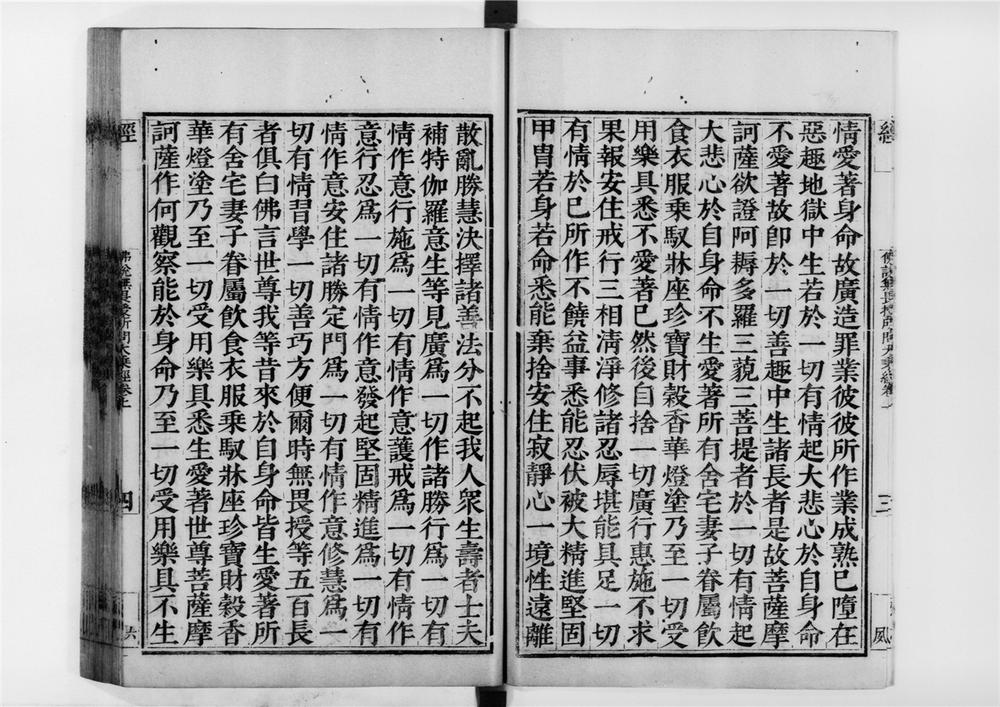 經
佛說無畏授所問大乘經卷上
三
風
情愛著身命故廣造罪業彼彼所作業成熟已墮在
惡趣地獄中生若於一切有情起大悲心於自身命
不愛著故即於一切善趣中生諸長者是故菩薩摩
訶薩欲證阿耨多羅三藐三菩提者於一切有情起
大悲心於自身命不生愛著所有舍宅妻子眷屬飲
食衣服乘馭牀座珍寶財穀香華燈塗乃至一切受
用樂具悉不愛著已然後自捨一切廣行惠施不求
果報安住戒行三相清淨修諸忍辱堪能具足一切
有情於己所作不饒益事悉能忍伏被大精進堅固
甲冑若身若命悉能棄捨安住寂靜心一境性遠離
散亂勝慧決擇諸善法分不起我人眾生壽者士夫
補特伽羅意生等見廣為一切作諸勝行為一切有
情作意行施為一切有情作意護戒為一切有情作
意行忍為一切有情作意發起堅固精進為一切有
情作意安住諸勝定門為一切有情作意修慧為一
切有情習學一切善巧方便爾時無畏授等五百長
者俱白佛言世尊我等昔來於自身命皆生愛著所
有舍宅妻子眷屬飲食衣服乘馭牀座珍寶財穀香
華燈塗乃至一切受用樂具悉生愛著世尊菩薩摩
訶薩作何觀察能於身命乃至一切受用樂具不生
經
佛說無畏授所問大乘經卷上
四
六